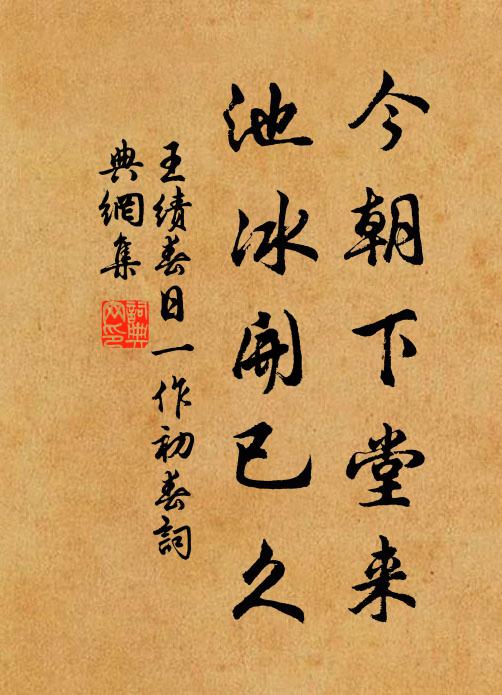 今朝下堂来
池冰開已久
王績春日一作初春詞
典網集
詞典
网印